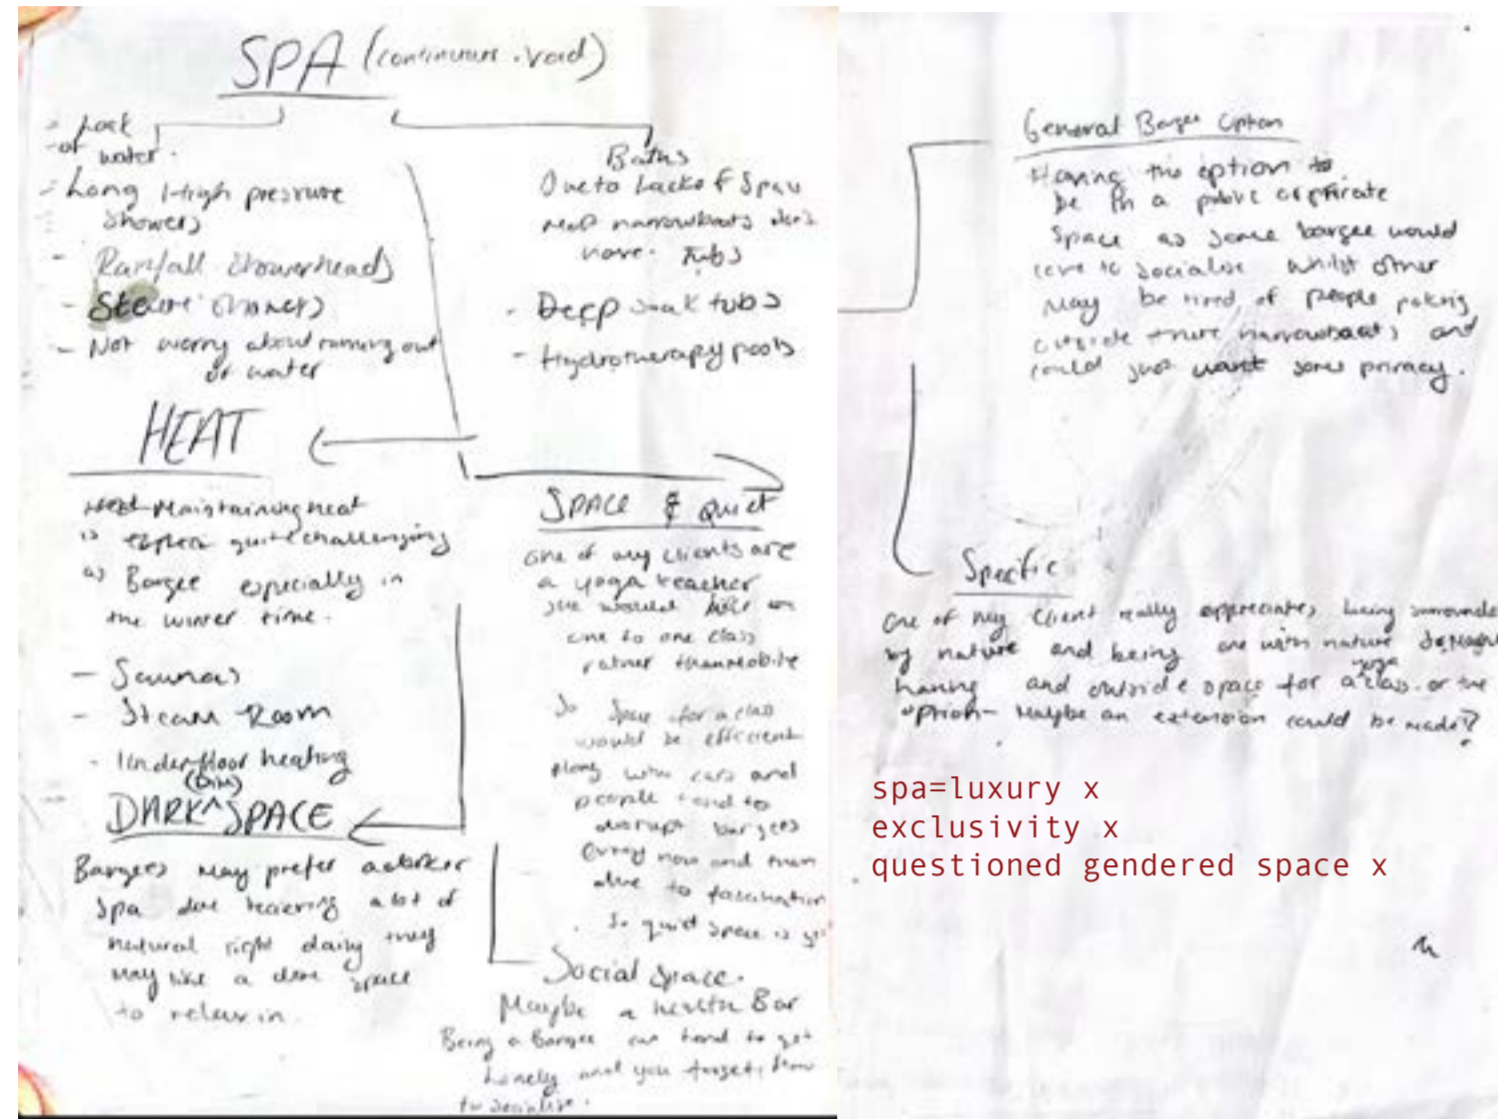 SPA (continuum . void)
- Lack
- of water.
- Long High pressure
showers
- Rainfall showerheads
- Steam showers
- Not worry about running out
of water
Baths
Due to Lack of Space
most narrowboats don't
have. Tubs
- Deep soak tubs
- Hydrotherapy pools
HEAT
Maintaining heat
is quite challenging
as Bargee especially in
the winter time.
- Saunas
- Steam Room
- Underfloor heating
(Dim)
DARK ^ SPACE
Bargees may prefer a darker
Spa due recieving a lot of
natural light daily they
may like a dim space
to relax in.
SPACE & Quiet
one of my clients are
a yoga teacher
she would like
one to one class
rather than mobile
So Space for a class
would be efficient
Along with cars and
people tend to
disrupt bargees
every now and then
due to fascination
. So quiet space is
Social Space.
Maybe a health Bar
Being a Bargee can tend to get
lonely and you forget how
to socialise.
General Bargee Option
Having this option to
be in a public or private
space as some bargee would
love to socialise whilst other
may be tired of people poking
outside there narrowboats and
could just want some privacy.
Specific
one of my client really appreciates being
by nature and being one with nature
having and outside space for a yoga class. or the
option - Maybe an extension could be made?
spa=luxury x
exclusivity x
questioned gendered space x